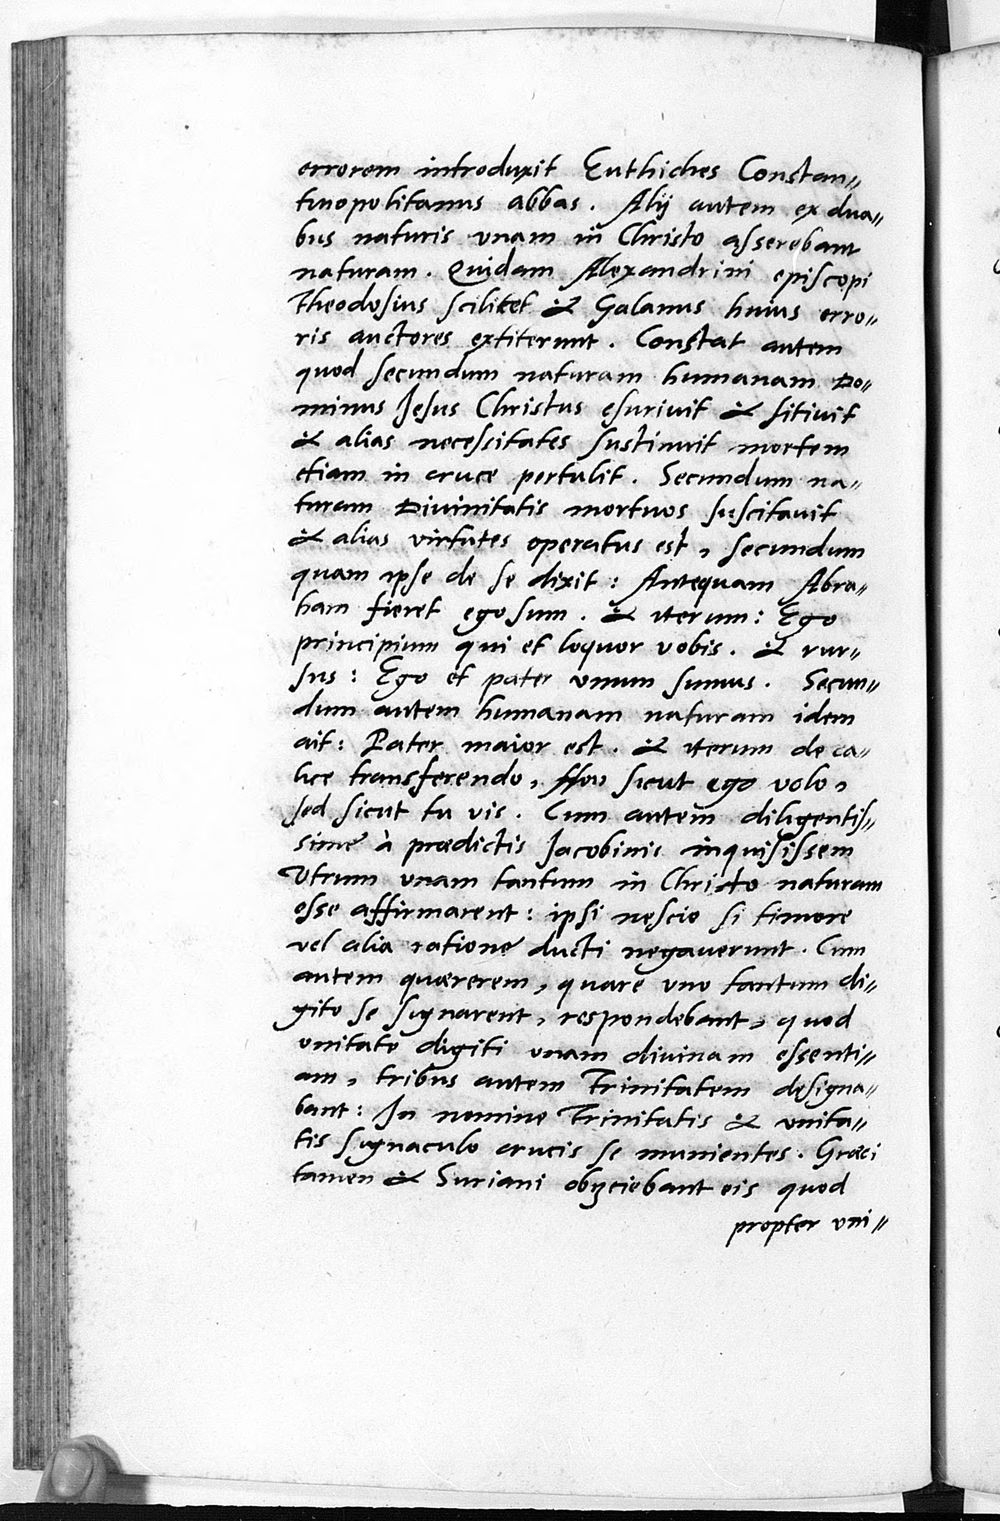 errorem introduxit Euthiches Constan„
tinopolitanus abbas. Alij autem ex dua„
bus naturis unam in Christo asserebant
naturam. Quidam Alexandrini episcopi
Theodosius scilicet & Galanus huius erro„
ris auctores extiterunt. Constat autem
quod secundum naturam humanam Do„
minus Jesus Christus esuriuit & sitiuit
& alias necessitates sustinuit mortem
etiam in cruce pertulit. Secundum na„
turam Diuinitatis mortuos suscitauit
& alias virtutes operatus est, secundum
quam ipse de se dixit: Antequam Abra„
ham fieret ego sum. & iterum: Ego
principium qui et loquor vobis. & rur„
sus: Ego et pater unum sumus. Secun„
dum autem humanam naturam idem
ait: Pater maior est. & iterum de ca„
lice transferendo, Non sicut ego volo,
sed sicut tu vis. Cum autem diligentis„
sime à prædictis Jacobinis inquisissem
Utrum unam tantum in Christo naturam
esse affirmarent: ipsi nescio si timore
vel alia ratione ducti negauerunt. Cum
autem quærerem, quare uno tantum di„
gito se signarent, respondebant, quod
unitate digiti unam diuinam essenti„
am, tribus autem Trinitatem designa„
bant: In nomine Trinitatis & unita„
tis signaculo crucis se munientes. Græci
tamen & Suriani obijciebant eis quod
propter uni„